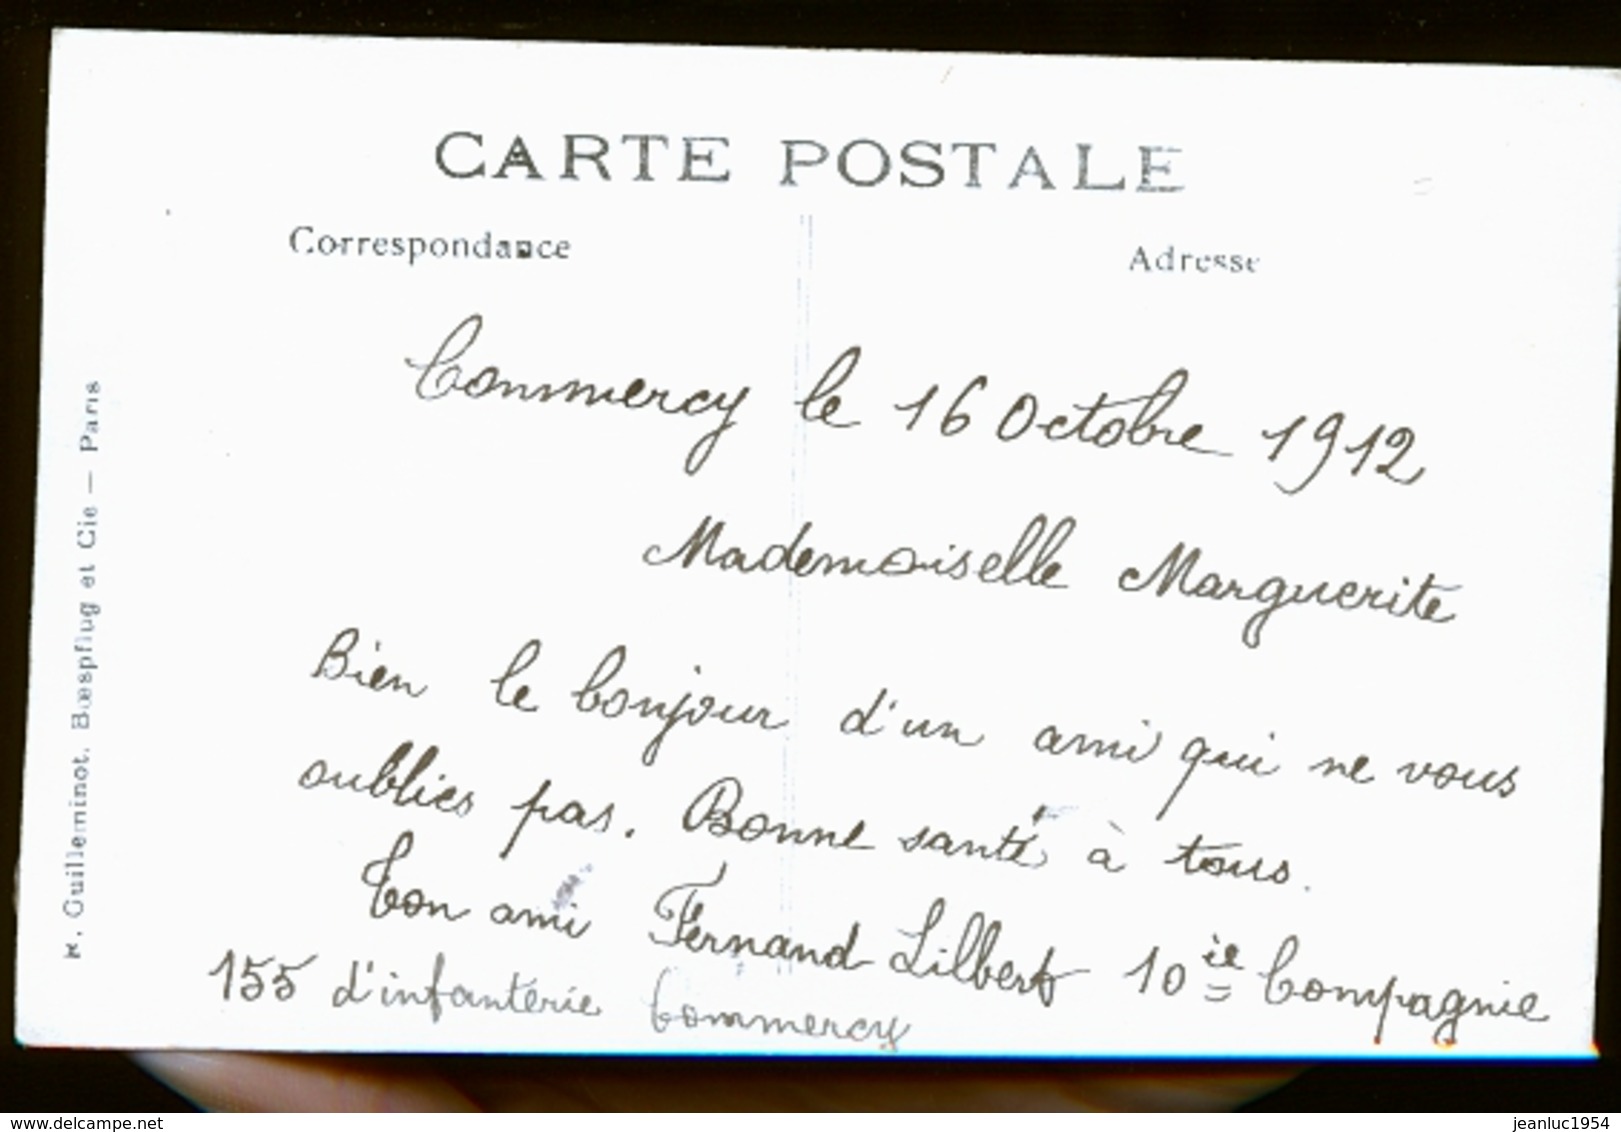 CARTE POSTALE
Correspondance
Adresse
Commercy le 16 Octobre 1912
Mademoiselle Marguerite
Bien le bonjour d'un ami qui ne vous
oublies pas. Bonne santé à tous.
Ton ami Fernand Lilbert 10ie Compagnie
155 d'infanterie Commercy
R. Guilleminot, Bœspflug et Cie — Paris
www.delcampe.net
jeanluc1954